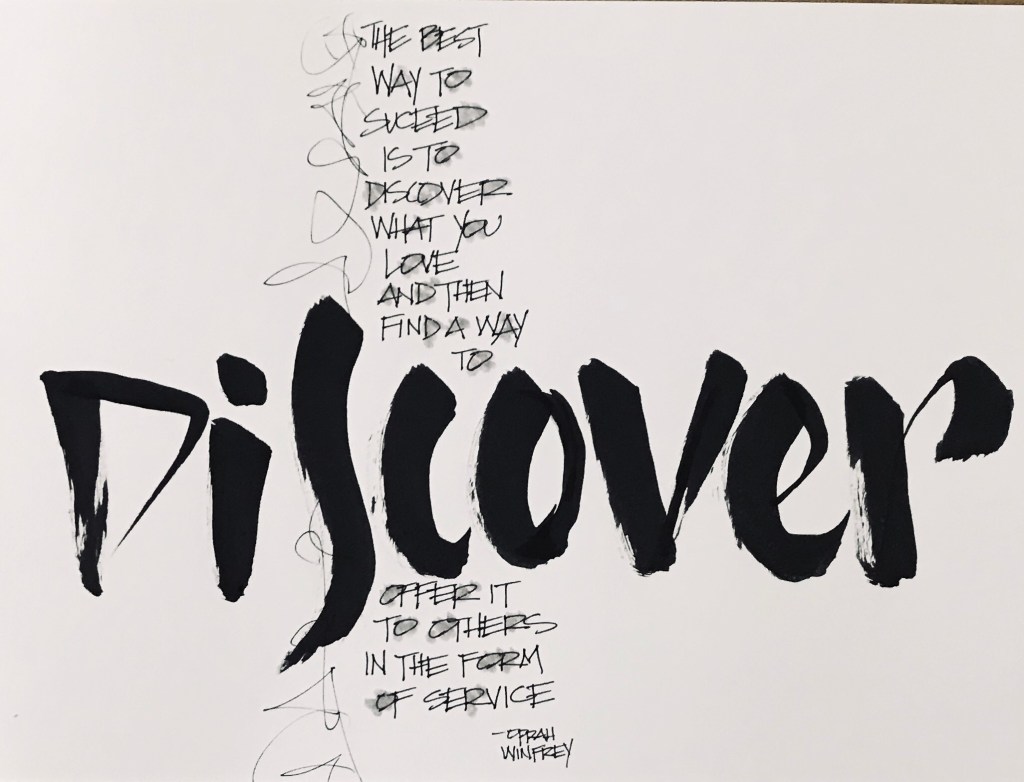 THE BEST
WAY TO
SUCEED
IS TO
DISCOVER
WHAT YOU
LOVE
AND THEN
FIND A WAY
TO
Discover
OFFER IT
TO OTHERS
IN THE FORM
OF SERVICE
-OPRAH
WINFREY